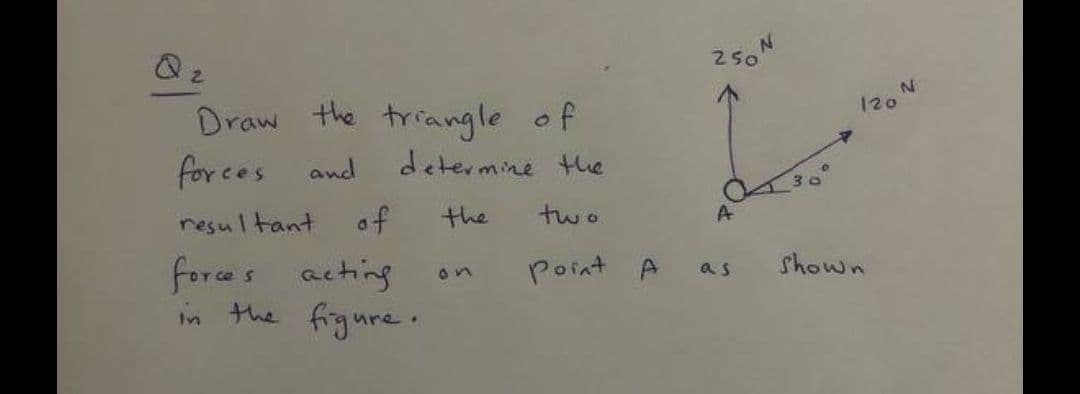 Q2
Draw the triangle of
forces and determine the
resultant of the two
forces acting on point A as shown
in the figure.
250 N
120 N
30°
A